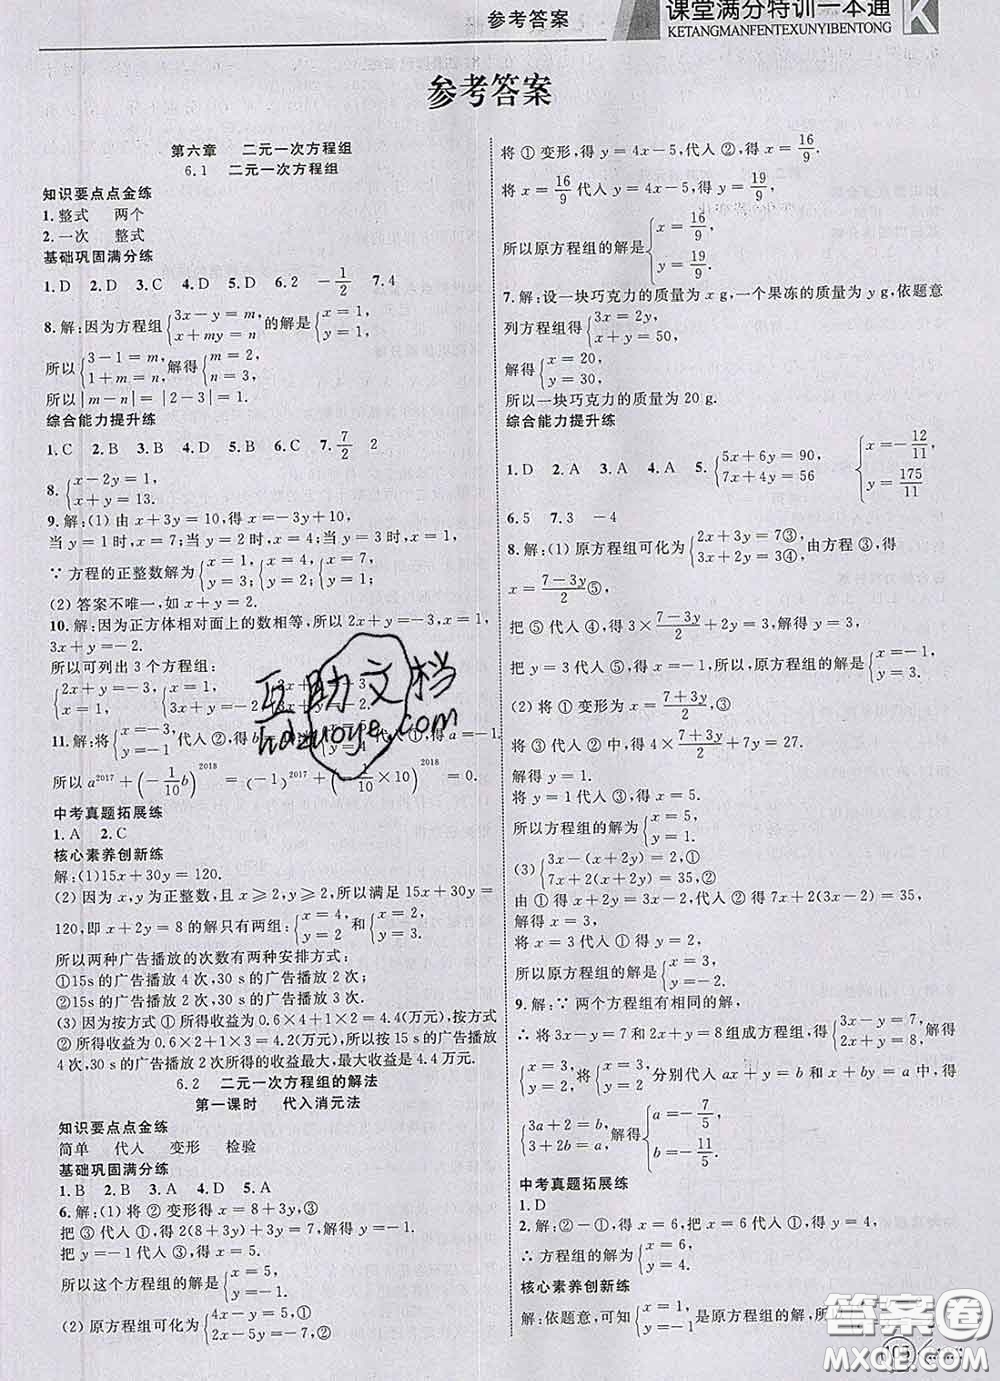 参考答案
课堂满分特训一本通
KETANGMANFENTEXUNYIBENTONG
K
参考答案
第六章 二元一次方程组
6.1 二元一次方程组
知识要点点金练
1.整式 两个
2.一次 整式
基础巩固满分练
1.D 2.D 3.C 4.D 5.D 6.2 -1/2 7.4
8.解:因为方程组{3x-y=m, x+my=n 的解是{x=1, y=1,
所以{3-1=m, 1+m=n, 解得{m=2, n=3,
所以|m-n|=|2-3|=1.
综合能力提升练
1.C 2.B 3.B 4.D 5.B 6.C 7.7/2 2
8.{x-2y=1, x+y=13.
9.解:(1)由x+3y=10,得x=-3y+10,
当y=1时,x=7;当y=2时,x=4;当y=3时,x=1,
∵方程的正整数解为{x=1, y=3, {x=4, y=2, {x=7, y=1.
(2)答案不唯一,如x+y=2.
10.解:因为正方体相对面上的数相等,所以2x+y=-3,x=1,
3x+y=-2.
所以可列出3个方程组:
{2x+y=-3, x+y=1,
11.解:将{x=-3, y=-1 代人②,得b=
代人①,得a=-1.
所以a²⁰¹⁷+(-1/10 b)²⁰¹⁸=(-1)²⁰¹⁷+(-1/10×10)²⁰¹⁸=0.
中考真题拓展练
1.A 2.C
核心素养创新练
解:(1)15x+30y=120.
(2)因为x,y为正整数,且x≥2,y≥2,所以满足15x+30y=
120,即x+2y=8的解只有两组:{x=4, y=2 和{x=2, y=3.
所以两种广告播放的次数有两种安排方式:
①15s的广告播放4次,30s的广告播放2次;
②15s的广告播放2次,30s的广告播放3次.
(3)因为按方式①所得收益为0.6×4+1×2=4.4(万元),按方式
②所得收益为0.6×2+1×3=4.2(万元),所以按15s的广告播放
4次,30s的广告播放2次所得的收益最大,最大收益是4.4万元.
6.2 二元一次方程组的解法
第一课时 代入消元法
知识要点点金练
简单 代人 变形 检验
基础巩固满分练
1.B 2.B 3.A 4.D 5.A
6.解:(1)将②变形得x=8+3y,③
把③代人①,得2(8+3y)+3y=7,解得y=-1.
把y=-1代人③,得x=5,
所以这个方程组的解是{x=5, y=-1.
(2)原方程组可化为{4x-y=5,① 2x-5y=-7,②
将①变形,得y=4x-5,代人②,得x=16/9.
将x=16/9代人y=4x-5,得y=19/9,
所以原方程组的解是{x=16/9, y=19/9.
7.解:设一块巧克力的质量为x g,一个果冻的质量为y g,依题意
列方程组得{3x=2y, x+y=50,
解得{x=20, y=30.
所以一块巧克力的质量为20 g.
综合能力提升练
1.D 2.A 3.A 4.A 5.{5x+6y=90, 7x+4y=56 {x=-12/11, y=175/11
6.5 7.3 -4
8.解:(1)原方程组可化为{2x+3y=7③, 3x+2y=3④, 由方程③,得
x=(7-3y)/2⑤,
把⑤代人④,得3×(7-3y)/2+2y=3,解得y=3.
把y=3代人⑤,得x=-1,所以,原方程组的解是{x=-1, y=3.
(2)将①变形为x=(7+3y)/2,③
将③代人②,得4×(7+3y)/2+7y=27.
解得y=1,
将y=1代人③,得x=5.
所以方程组的解为{x=5, y=1.
(3){3x-(x+2y)=2,① 7x+2(x+2y)=35,②
由①得x+2y=3x-2,代人②得7x+2(3x-2)=35,
解得x=3,
将x=3代人①得y=2,
所以原方程组的解是{x=3, y=2.
9.解:∵两个方程组有相同的解,
∴将3x-y=7和2x+y=8组成方程组,得{3x-y=7, 2x+y=8, 解得
{x=3, y=2. 将{x=3, y=2 分别代人ax+y=b和x+by=a中,得
{3a+2=b, 3+2b=a, 解得{a=-7/5, b=-11/5.
中考真题拓展练
1.D
2.解:②-①,得x=6,将x=6代人①,得y=4,
∴方程组的解为{x=6, y=4.
核心素养创新练
解:依题意,可知{x=1, y=1 是原方程组的解,所
互助文档
hdzuoye.com
答案圈
MXQE.COM